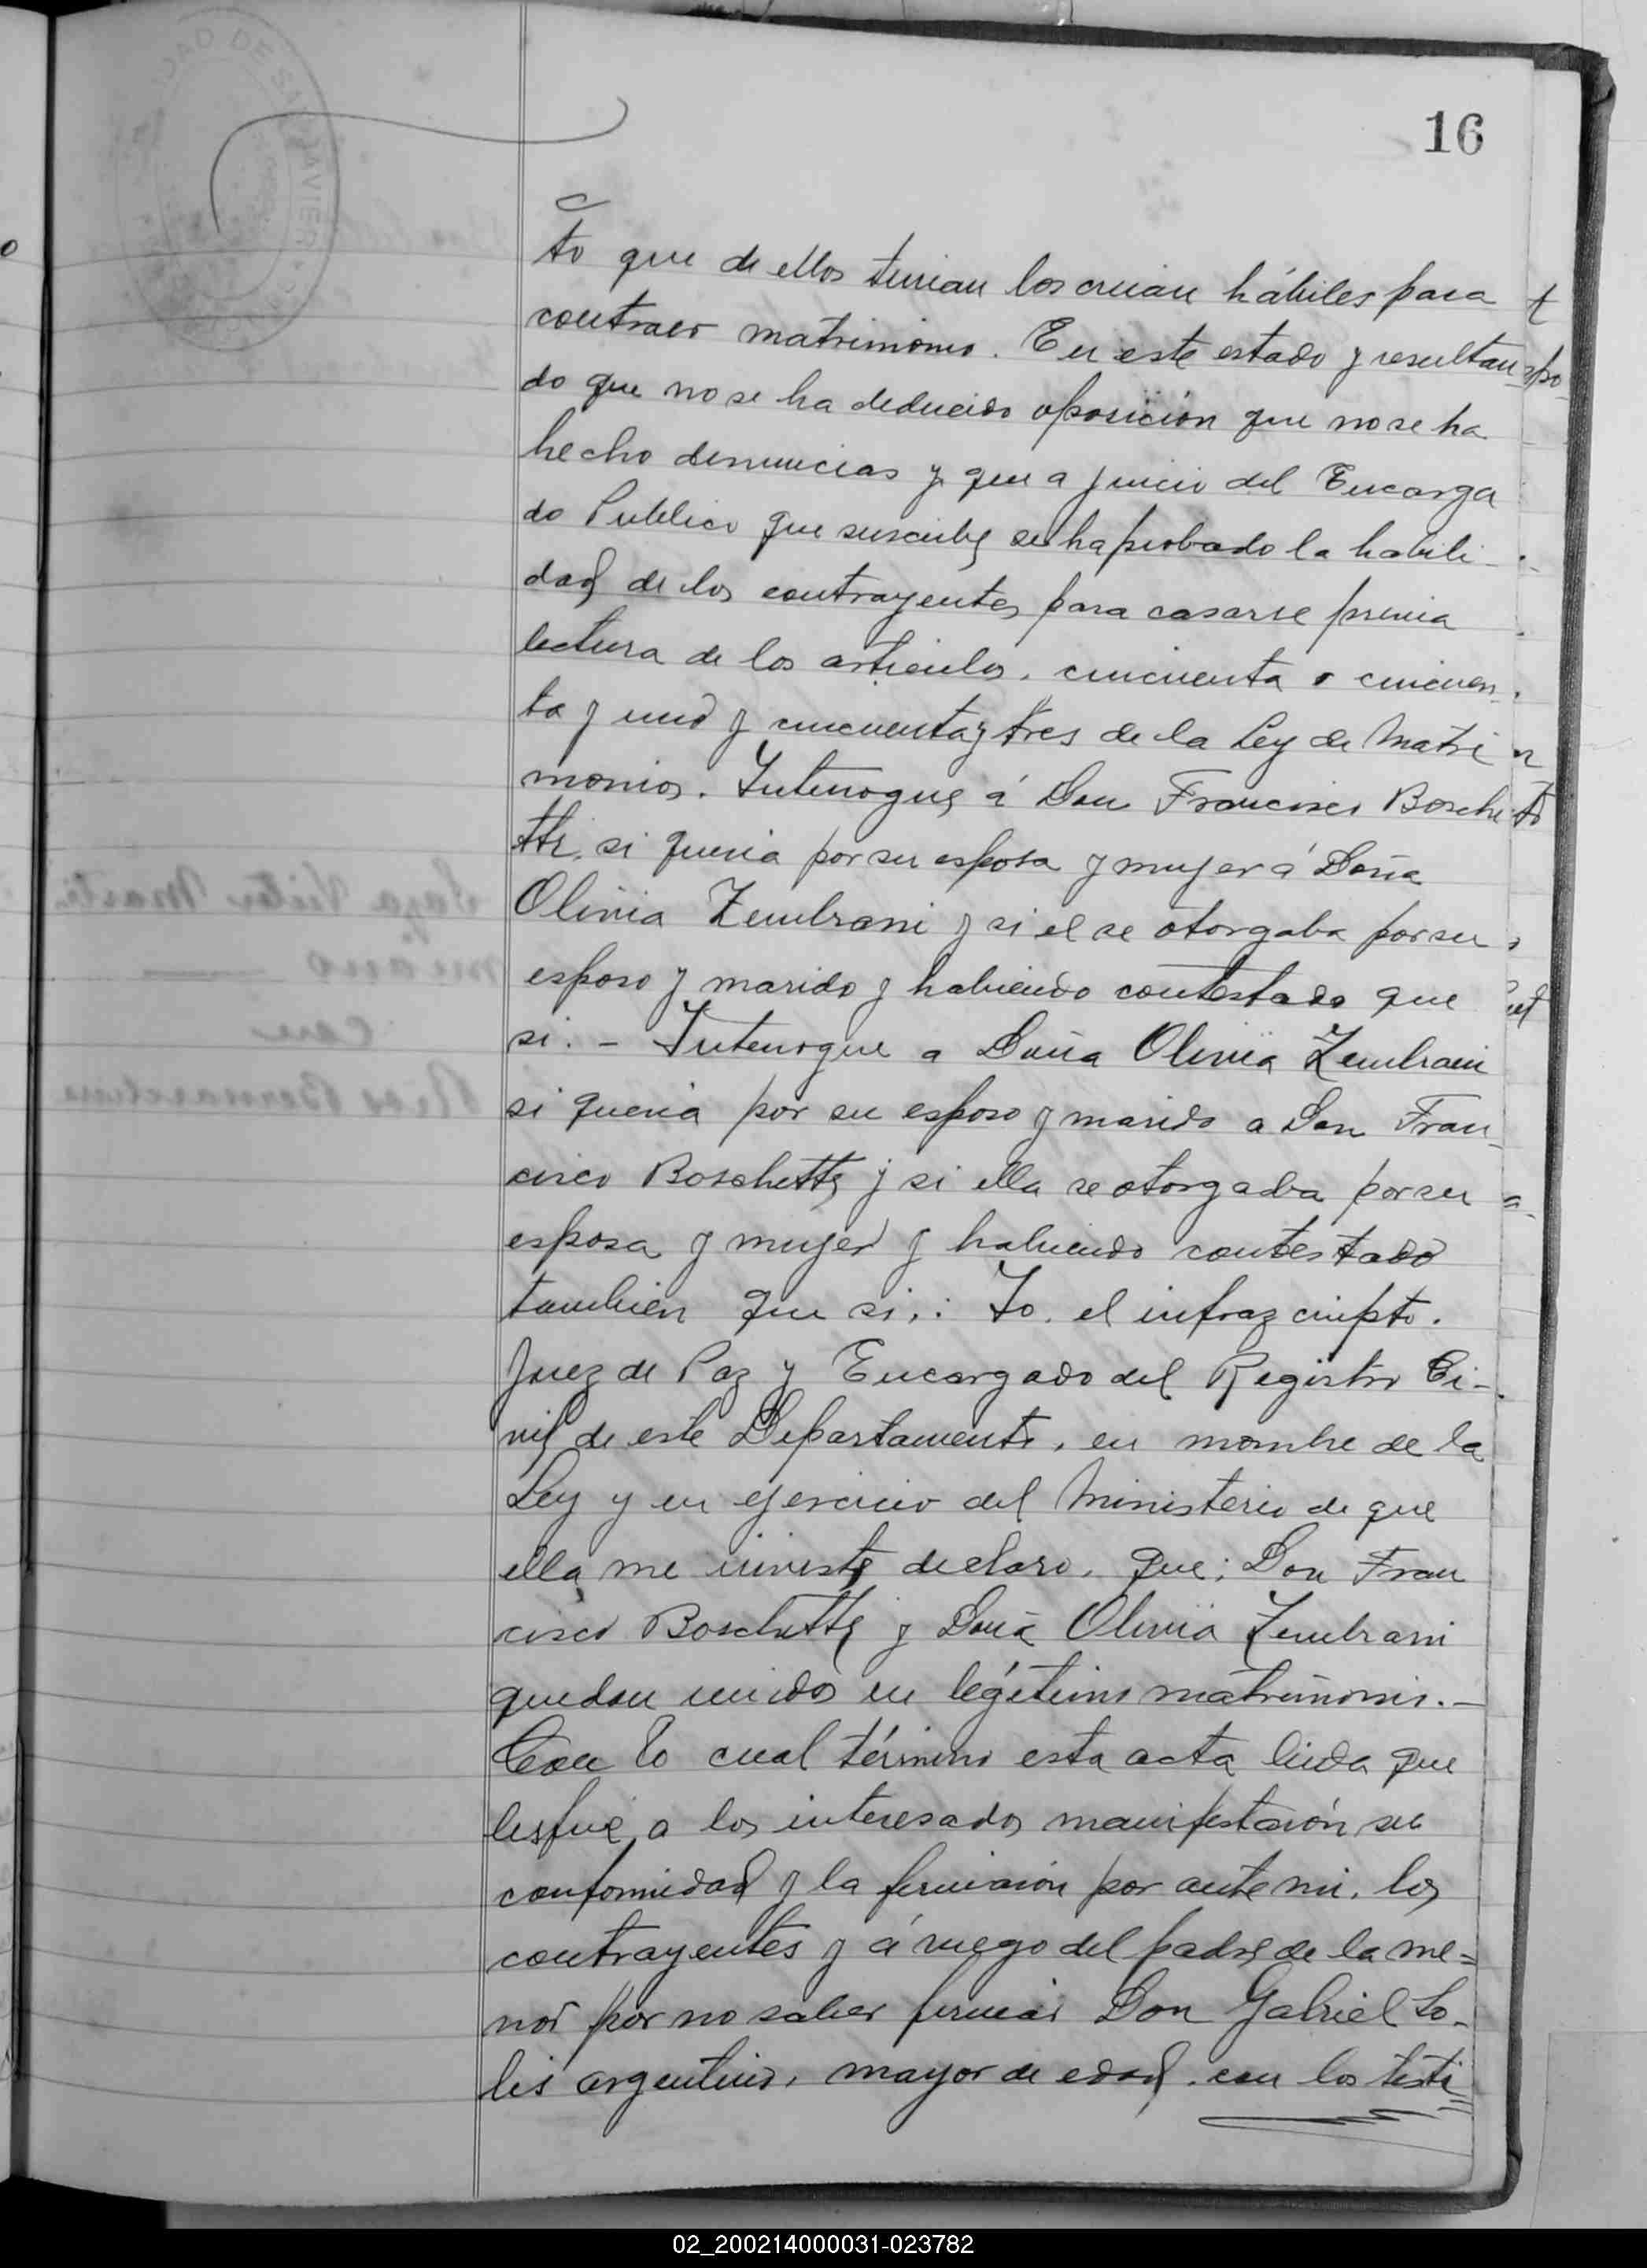 16
to que de ellos tenian los creian hábiles para
contraer matrimonio. En este estado y resultan
do que no se ha deducido oposición que no se ha
hecho denuncias y que a juicio del Encarga
do Publico que suscribe se ha probado la habili-
dad de los contrayentes para casarse previa
lectura de los articulos, cincuenta cincuen-
ta y uno y cincuenta y tres de la Ley de Matri
monios. Interrogue á Don Francisco Boschi
tti, si queria por su esposa y mujer á Doña
Olivia Zembrani y si el se otorgaba por su
esposo y marido y habiendo contestado que
si. - Interrogue a Doña Olivia Zembrani
si queria por su esposo y marido a Don Fran-
cisco Boschetti y si ella se otorgaba por su
esposa y mujer y habiendo contestado
tambien que si,: Yo. el infrazcripto.
Juez de Paz y Encargado del Registro Ci-
vil de este Departamento, en nombre de la
Ley y en ejercicio del Ministerio de que
ella me inviste declaro, que; Don Fran
cisco Boschetti y Doña Olivia Zembrani
quedan unidos en legétimo matrimonio.-
Con lo cual términó esta acta leida que
les fué a los interesados manifestarón su
conformidad y la firmarón por ante mi, los
contrayentes y á ruego del padre de la me=
nor por no saber firmar Don Gabriel So-
lis argentino, mayor de edad, con los testi=
02_200214000031-023782